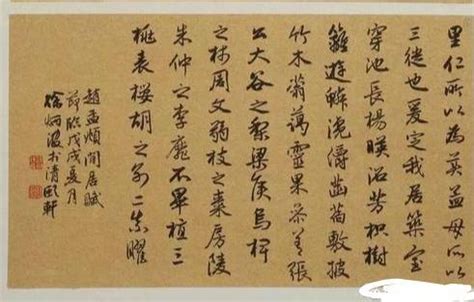 里仁所以為美孟母所以
三徙也爰定我居築室
穿池長楊暎沼芳枳樹
籬遊鱗瀺灂菡萏敷披
竹木蓊藹靈果參差張
公大谷之梨梁侯烏椑
之柿周文弱枝之棗房陵
朱仲之李靡不畢植三
桃表櫻胡之別二柰曜
趙孟頫閒居賦
節臨戊戌夏月
徐炳於清軒